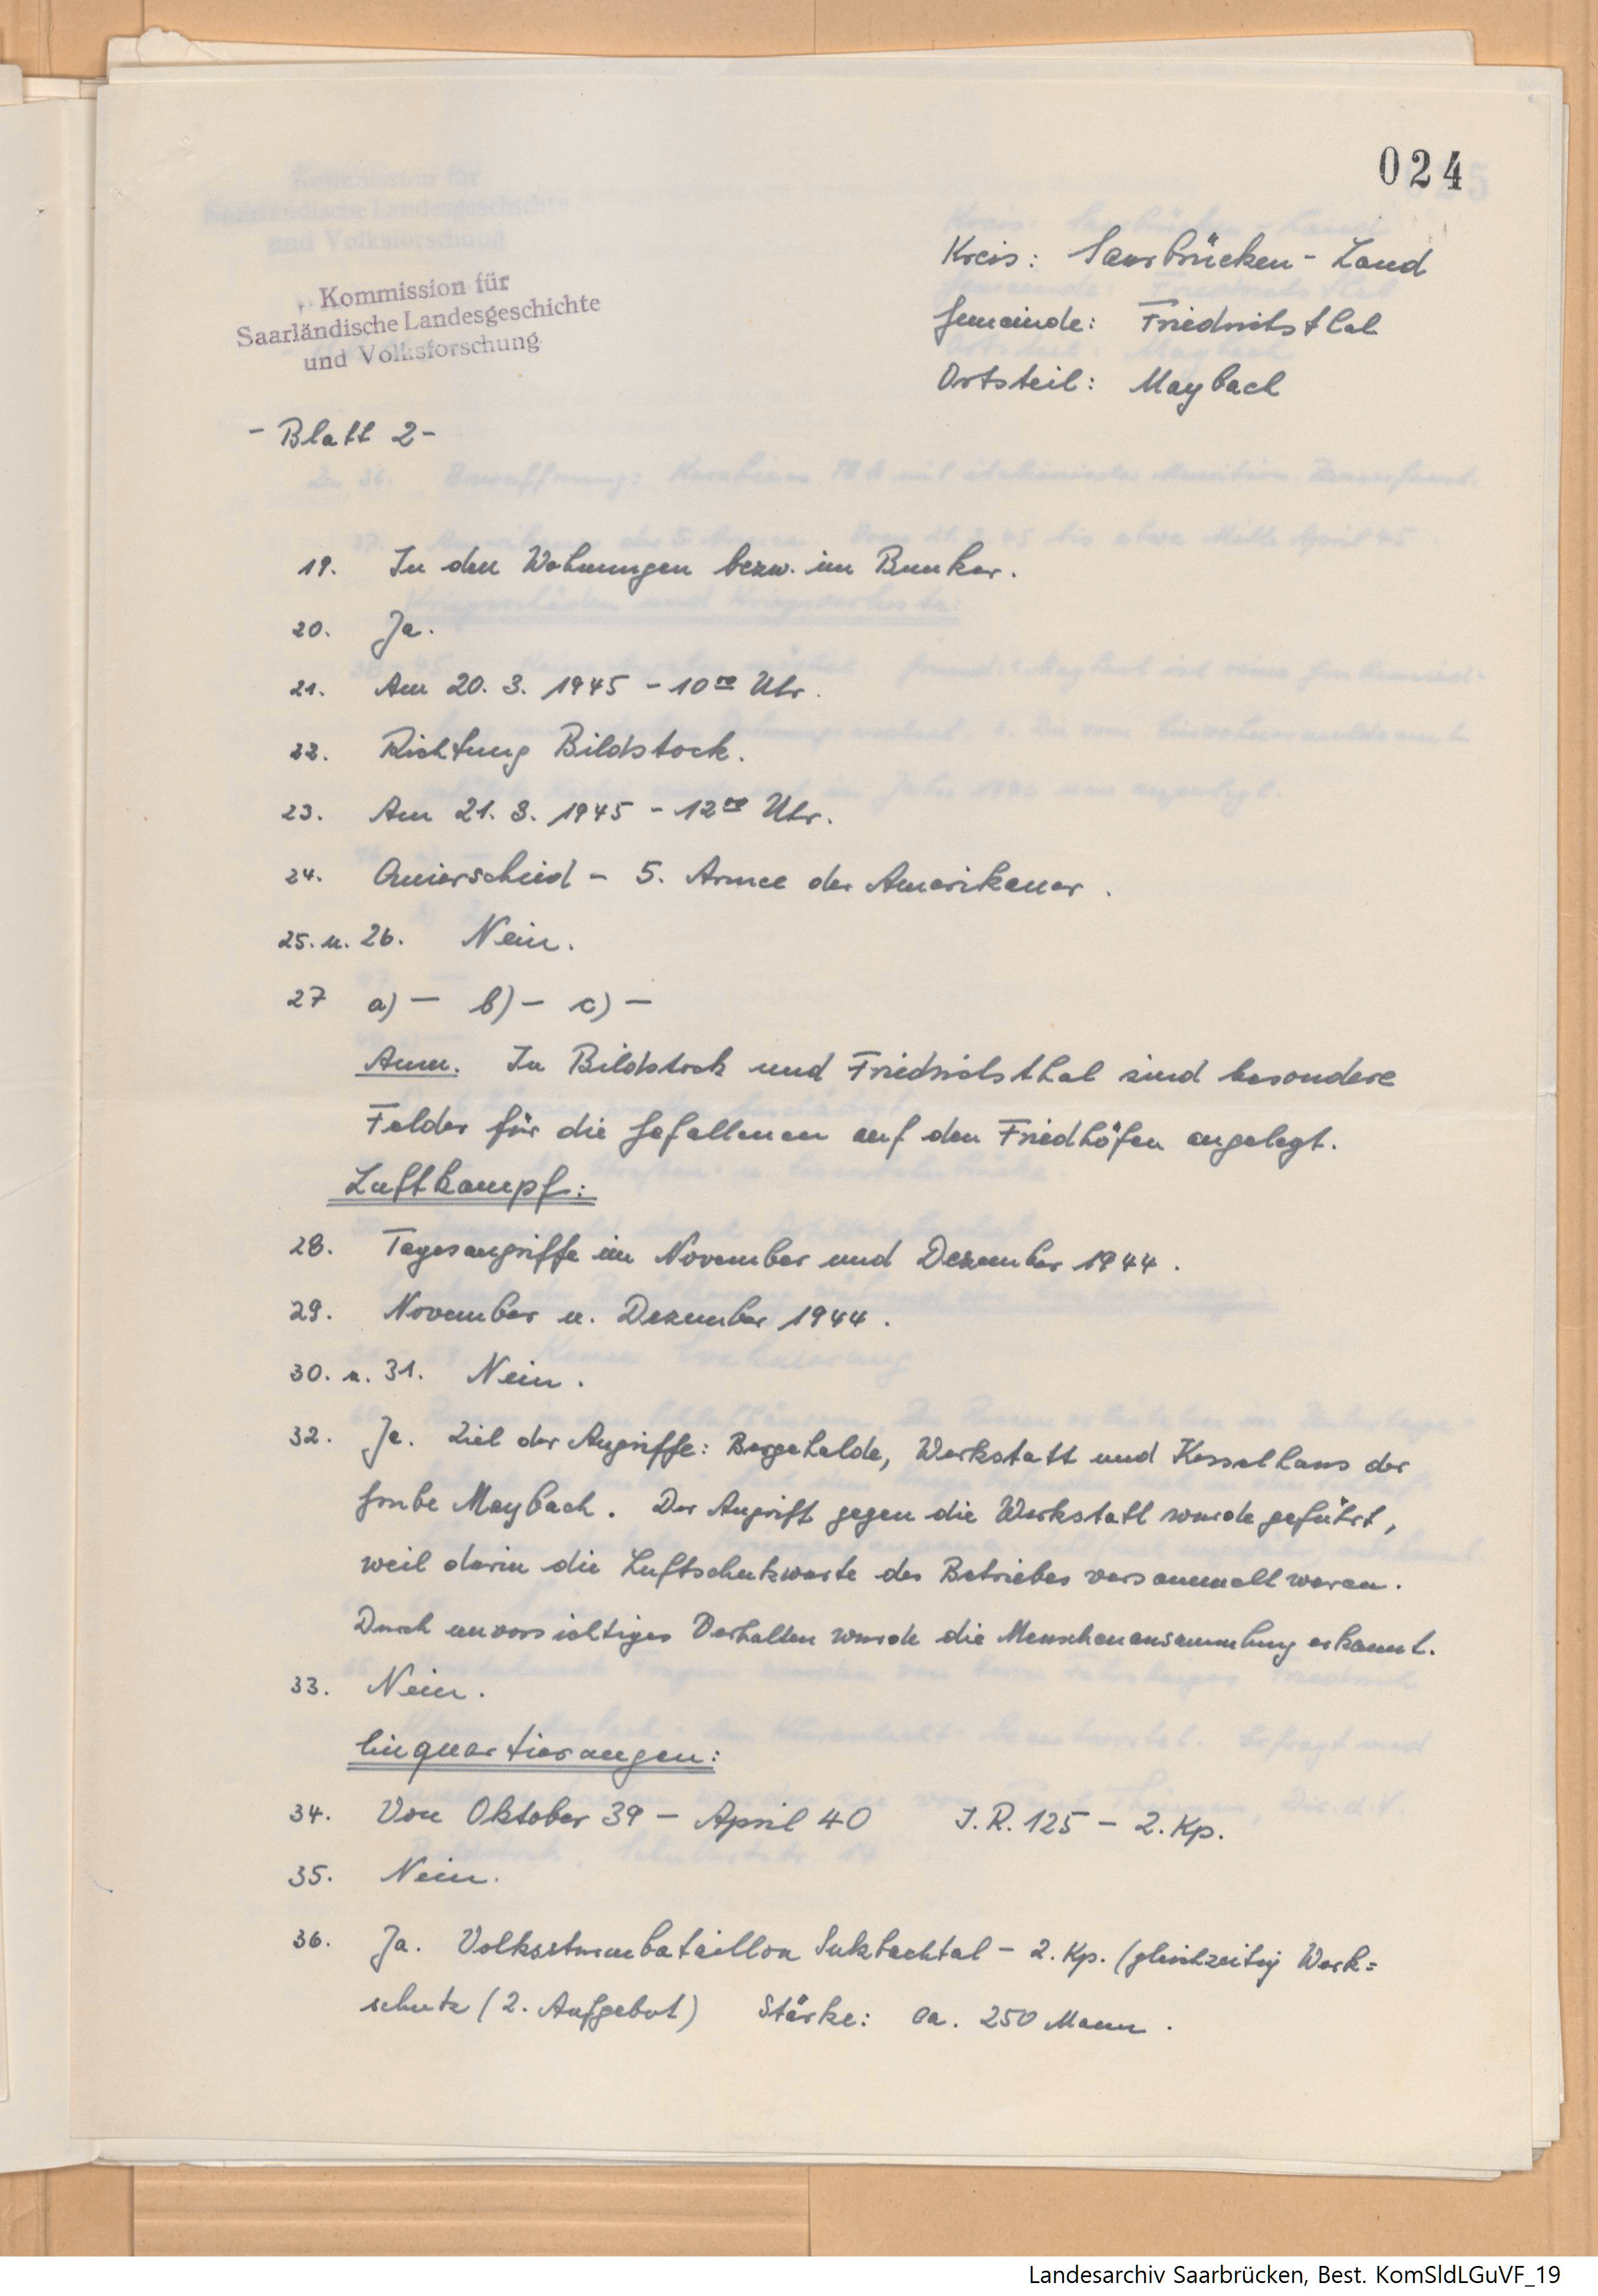 024
Kommission für
Saarländische Landesgeschichte
und Volksforschung
Kreis: Saarbrücken - Land
Gemeinde: Friedrichsthal
Ortsteil: Maybach
- Blatt 2 -
19. In den Wohnungen bezw. im Bunker.
20. Ja.
21. Am 20. 3. 1945 - 10⁰⁰ Uhr.
22. Richtung Bildstock.
23. Am 21. 3. 1945 - 12⁰⁰ Uhr.
24. Quierschied - 5. Armee der Amerikaner.
25. u. 26. Nein.
27 a) - b) - c) -
Anm. In Bildstock und Friedrichsthal sind besondere
Felder für die Gefallenen auf den Friedhöfen angelegt.
Luftkampf:
28. Tagesangriffe im November und Dezember 1944.
29. November u. Dezember 1944.
30. u. 31. Nein.
32. Ja. Ziel der Angriffe: Bergehalde, Werkstatt und Kesselhaus der
Grube Maybach. Der Angriff gegen die Werkstatt wurde geführt,
weil darin die Luftschutzwarte des Betriebes versammelt waren.
Durch unvorsichtiges Verhalten wurde die Menschenansammlung erkannt.
33. Nein.
Einquartierungen:
34. Von Oktober 39 - April 40 J.R. 125 - 2. Kp.
35. Nein.
36. Ja. Volkssturmbataillon Sulzbachtal - 2. Kp. (gleichzeitig Werk=
schutz (2. Aufgebot) Stärke: ca. 250 Mann.
Landesarchiv Saarbrücken, Best. KomSldLGuVF_19